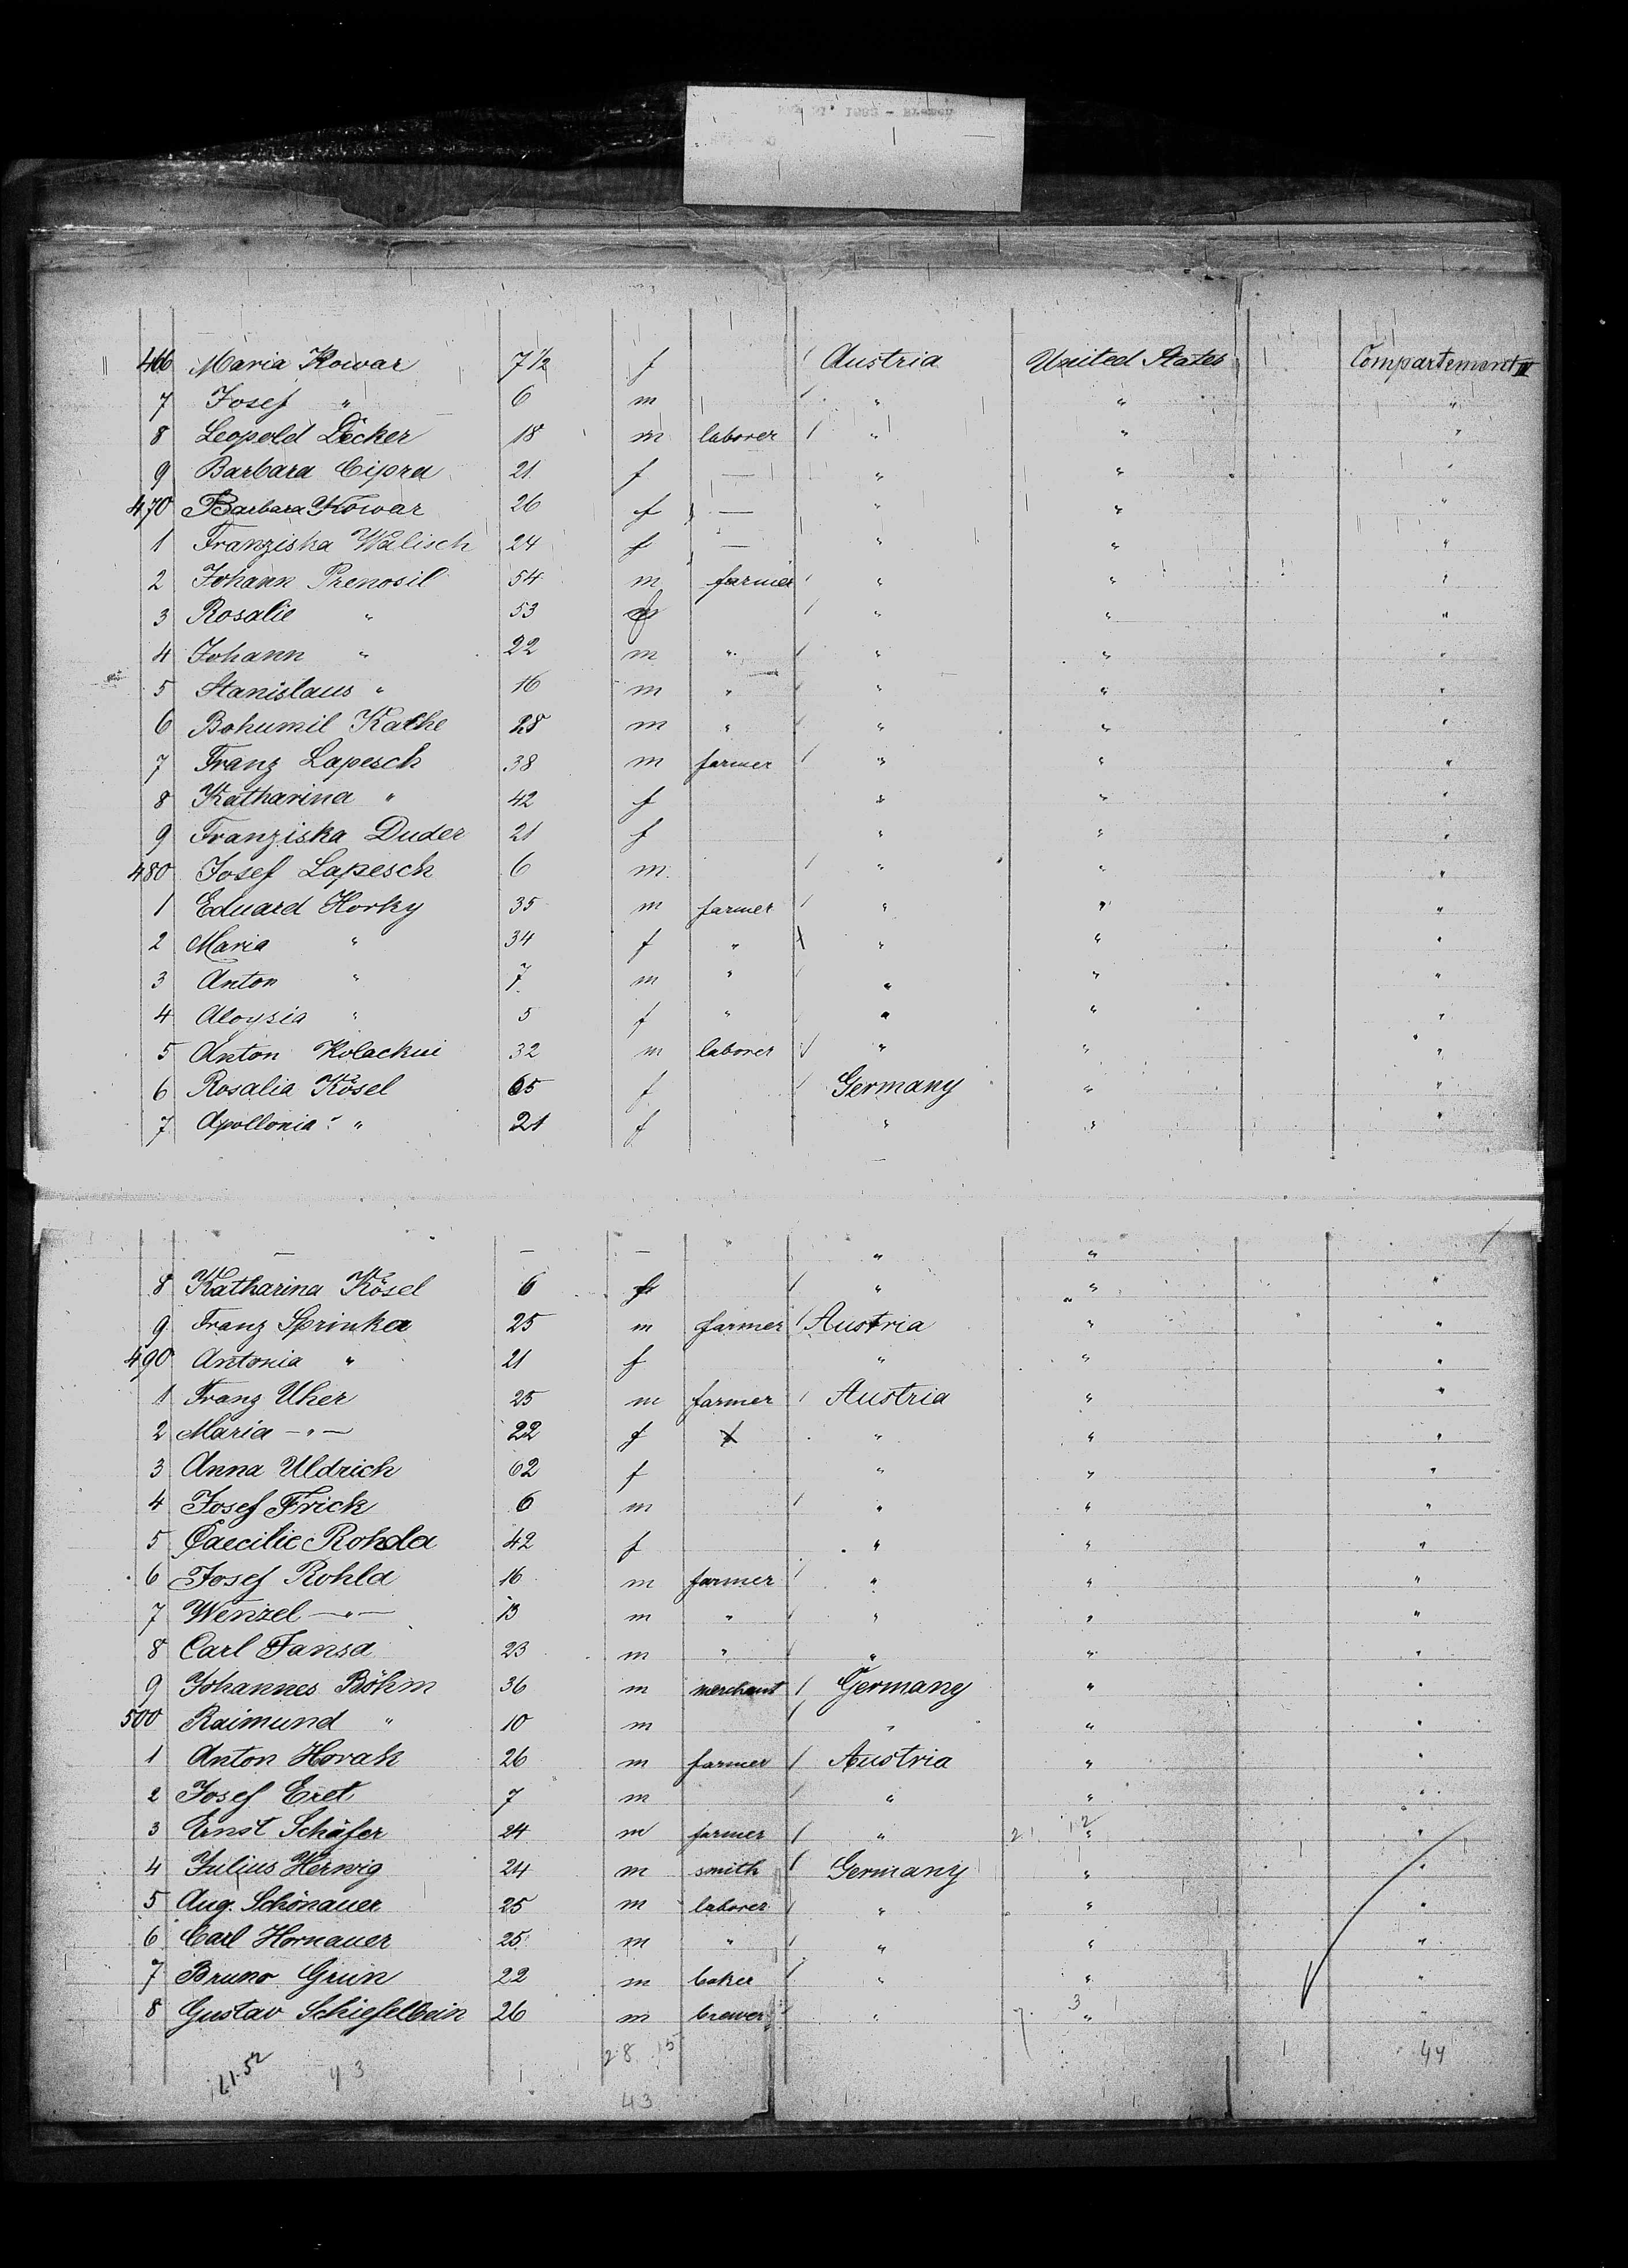 466 Maria Kowar 7 1/2 f Austria United States Compartement IV
7 Josef " 6 m " " "
8 Leopold Decker 18 m laborer " " "
9 Barbara Cipra 21 f — " " "
470 Barbara Kowar 26 f — " " "
1 Franziska Walisch 24 f — " " "
2 Johann Prenosil 54 m farmer " " "
3 Rosalie " 53 f " " "
4 Johann " 22 m " " " "
5 Stanislaus " 16 m " " " "
6 Bohumil Kathe 28 m " " " "
7 Franz Lapesch 38 m farmer " " "
8 Katharina " 42 f " " "
9 Franziska Duder 21 f " " "
480 Josef Lapesch 6 m " " "
1 Eduard Horky 35 m farmer " " "
2 Maria " 34 f " " " "
3 Anton " 7 m " " " "
4 Aloysia " 5 f " " " "
5 Anton 32 m laborer " " "
6 Rosalia Kösel 65 f Germany " "
7 Apollonia " 21 f " " "
— — — " " "
8 Katharina Kösel 6 f " " "
9 Franz Sprinka 25 m farmer Austria " "
490 Antonia " 21 f " " "
1 Franz Uher 25 m farmer Austria " "
2 Maria —"— 22 f " " "
3 Anna Uldrich 62 f " " "
4 Josef Frick 6 m " " "
5 Caecilie Rohda 42 f " " "
6 Josef Rohla 16 m farmer " " "
7 Wenzel —"— 13 m " " " "
8 Carl Jansa 23 m " " " "
9 Johannes Böhm 36 m merchant Germany " "
500 Raimund " 10 m " " "
1 Anton Horak 26 m farmer Austria " "
2 Josef Eret 7 m " " "
3 Ernst Schäfer 24 m farmer " " "
4 Julius Herwig 24 m smith Germany " "
5 Aug. Schönauer 25 m laborer " " "
6 Carl Hornauer 25 m " " " "
7 Bruno Grün 22 m baker " " "
8 Gustav Schiefelbein 26 m brewer " " "
28 15
43